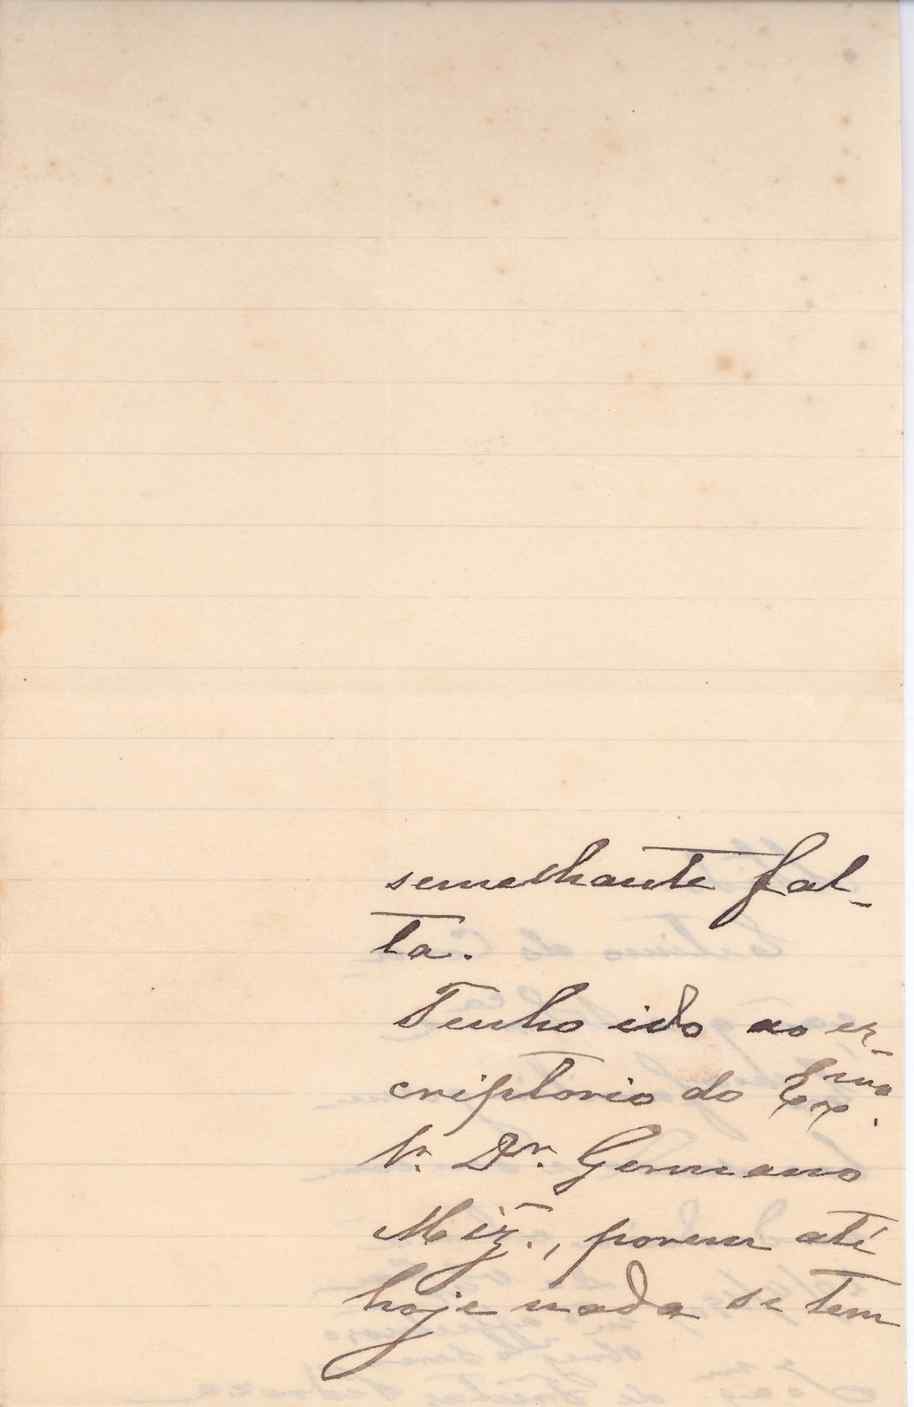 semelhante fal-
ta.
Tenho ido ao es-
criptorio do Exmo.
Sr. Dr. Germano
porem até
hoje nada se tem